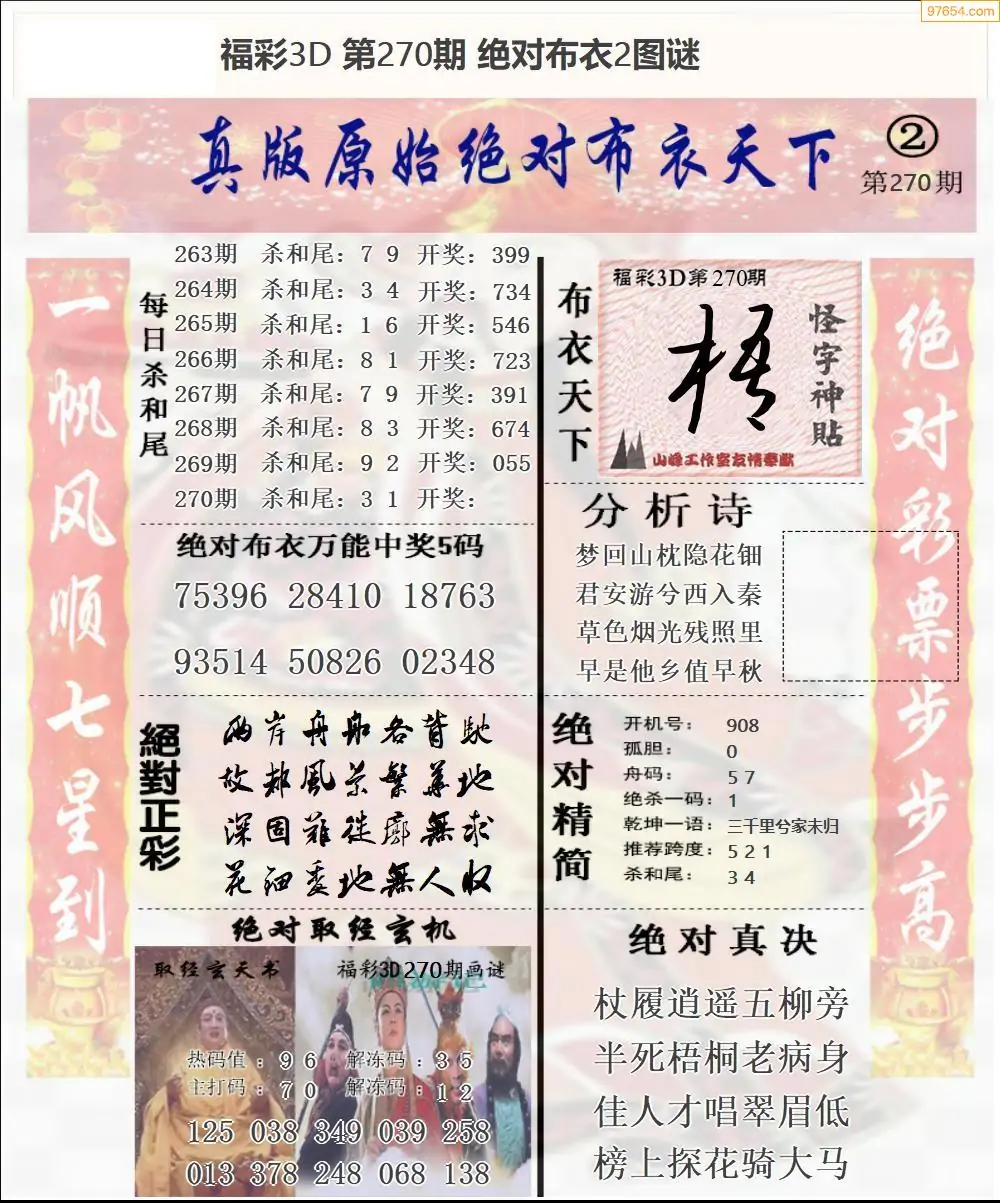 97654.com
福彩3D 第270期 绝对布衣2图谜
真版原始绝对布衣天下
②
第270期
一帆风顺七星到
每日杀和尾
263期 杀和尾：7 9 开奖：399
264期 杀和尾：3 4 开奖：734
265期 杀和尾：1 6 开奖：546
266期 杀和尾：8 1 开奖：723
267期 杀和尾：7 9 开奖：391
268期 杀和尾：8 3 开奖：674
269期 杀和尾：9 2 开奖：055
270期 杀和尾：3 1 开奖：
绝对布衣万能中奖5码
75396 28410 18763
93514 50826 02348
絕對正彩
两岸舟船各背馳
故都風景繁華地
深固難徙廓無求
花细委地無人收
绝对取经玄机
取经玄天书
福彩3D270期画谜
热码值：9 6 解冻码：3 5
主打码：7 0 解冻码：1 2
125 038 349 039 258
013 378 248 068 138
布衣天下
福彩3D第270期
梧
怪字神貼
山峰工作室友情奉献
分析诗
梦回山枕隐花钿
君安游兮西入秦
草色烟光残照里
早是他乡值早秋
绝对精简
开机号： 908
孤胆： 0
舟码： 5 7
绝杀一码：1
乾坤一语：三千里兮家未归
推荐跨度：5 2 1
杀和尾： 3 4
绝对真决
杖履逍遥五柳旁
半死梧桐老病身
佳人才唱翠眉低
榜上探花骑大马
绝对彩票步步高